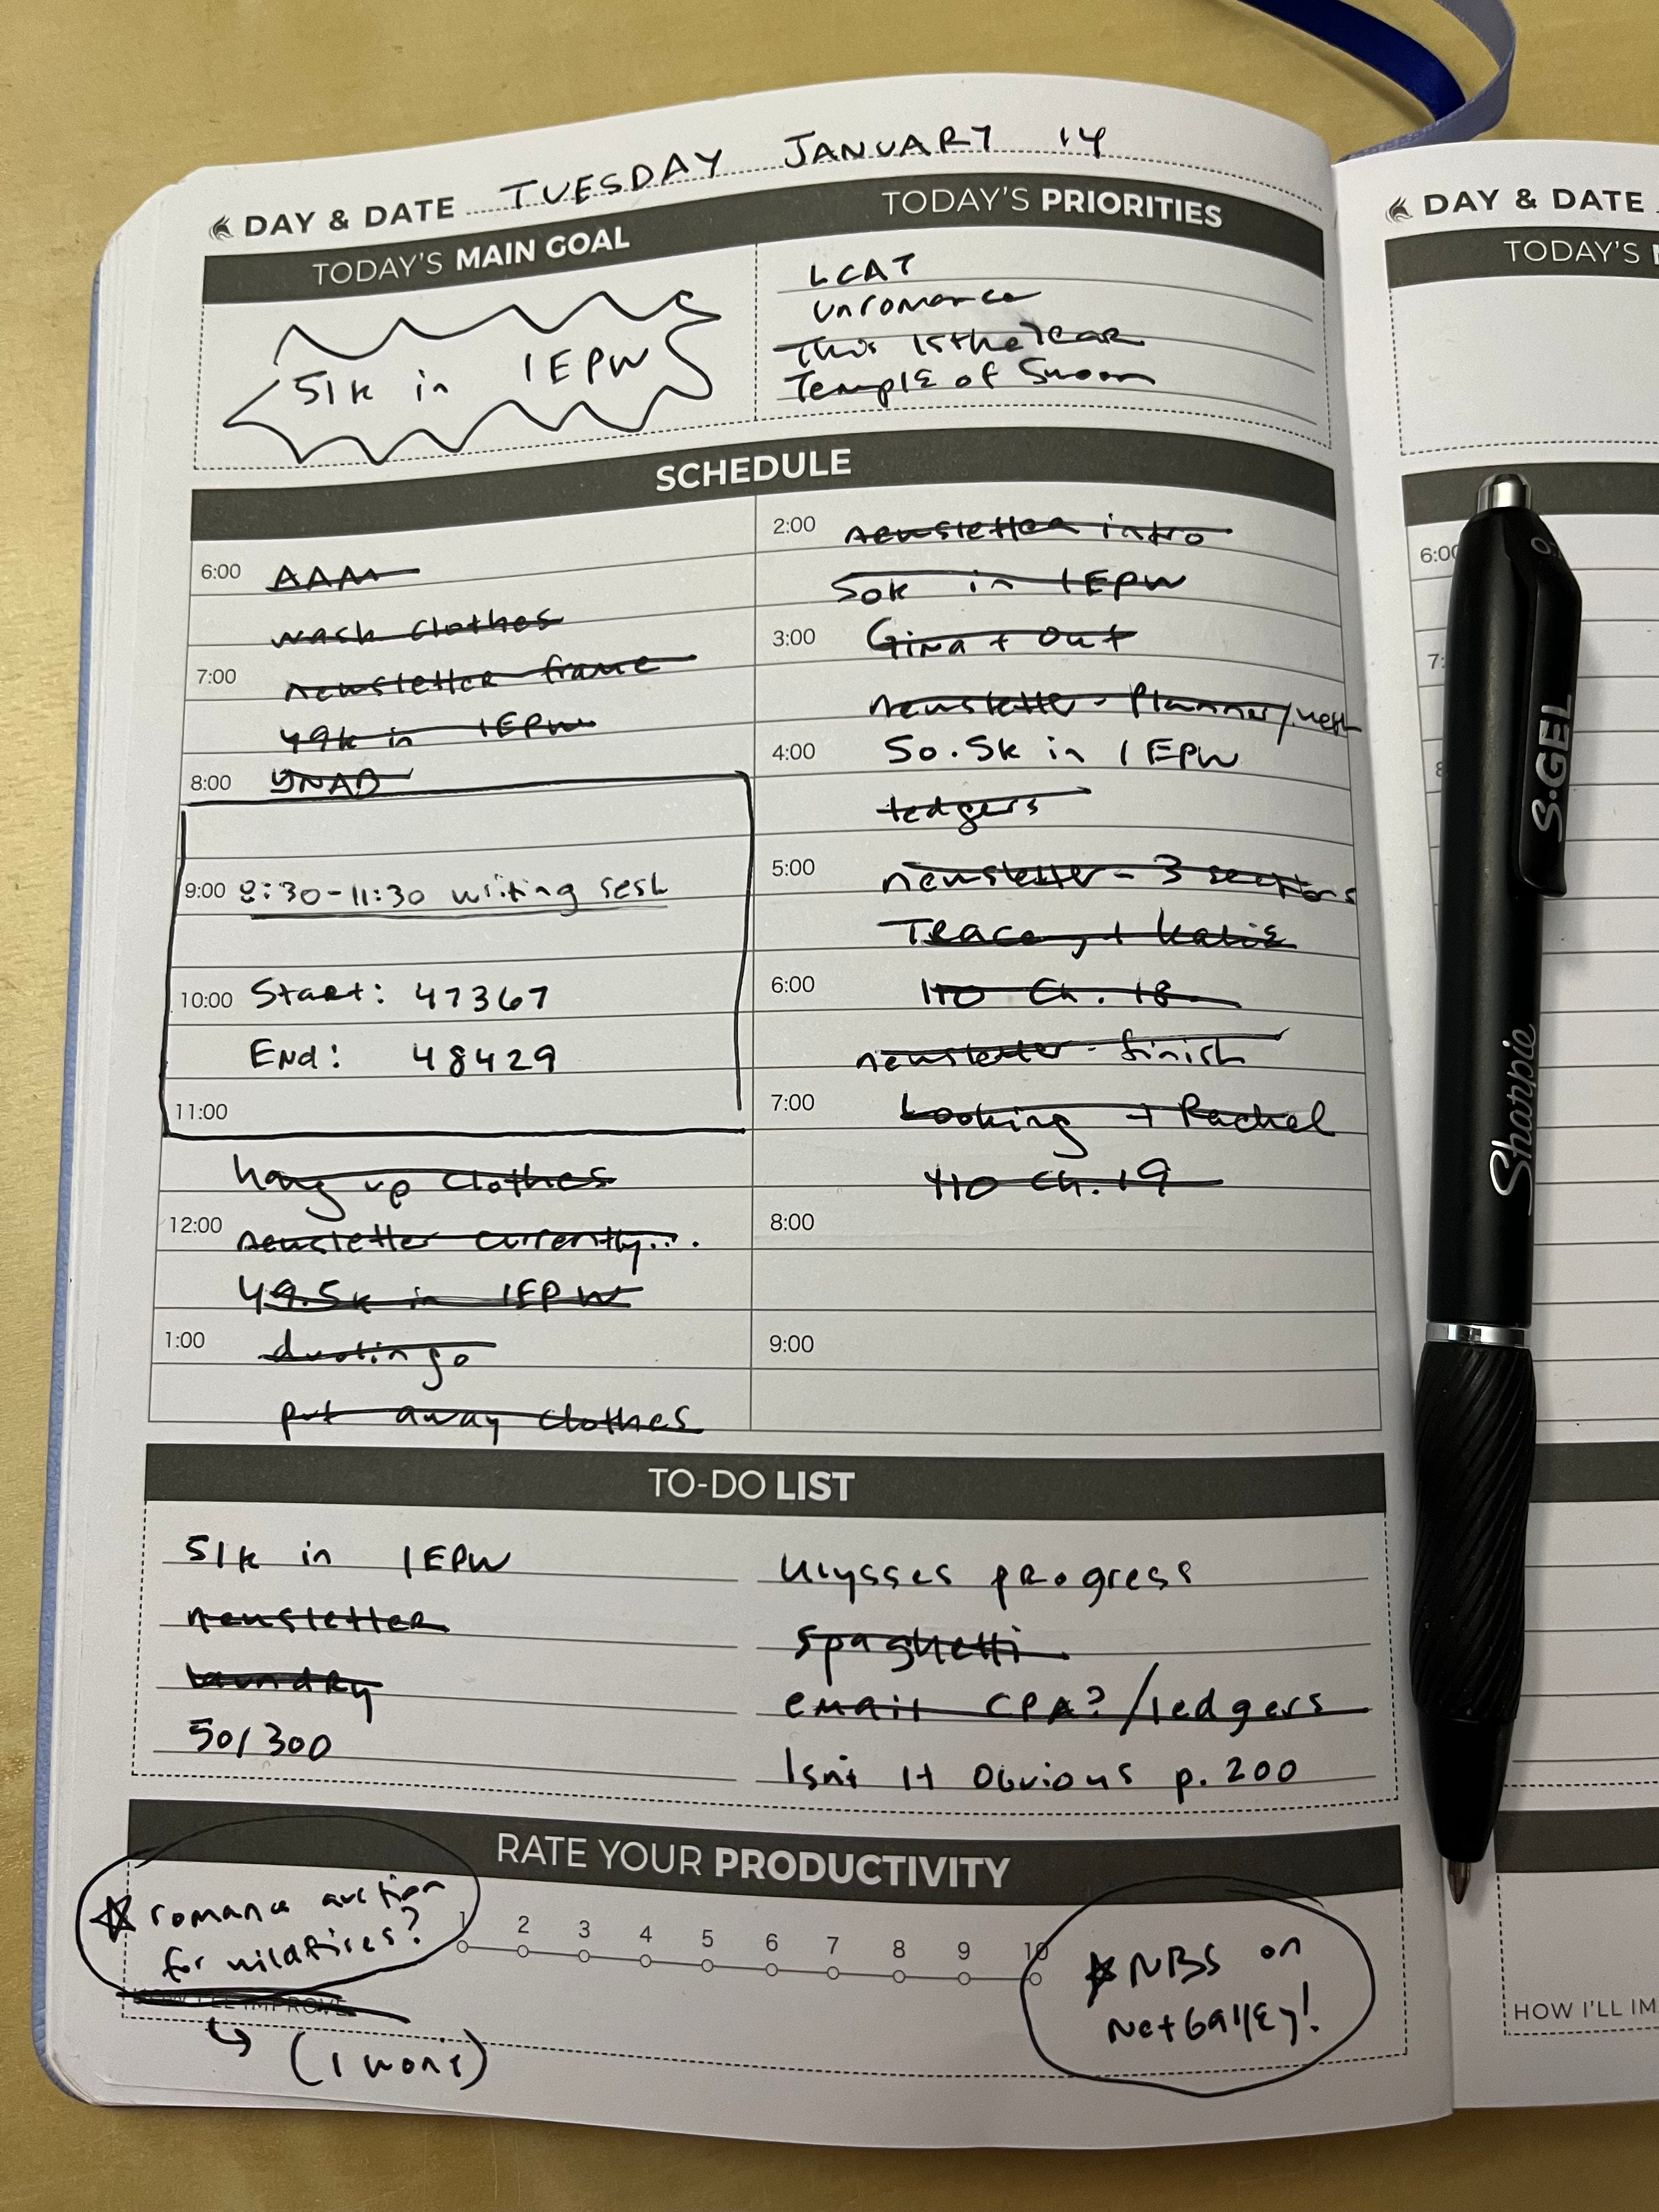 DAY & DATE TUESDAY JANUARY 14
TODAY'S MAIN GOAL
51k in IEPW
TODAY'S PRIORITIES
LCAT
Unromance
This Is the Year
Temple of Swoon
SCHEDULE
6:00 AAM
wash clothes
7:00 newsletter frame
49k in IEPW
8:00 YNAB
9:00 8:30-11:30 writing sesh
10:00 Start: 47367
End: 48429
11:00
hang up clothes
12:00 newsletter currently...
49.5k in IEPW
1:00 duolingo
put away clothes
2:00 newsletter intro
50k in IEPW
3:00 Gina + Out
newsletter - Planner/
4:00 50.5k in IEPW
ledgers
5:00 newsletter - 3 sections
Tracey + Katie
6:00 Ch. 18
newsletter - finish
7:00 Looking + Rachel
Ch. 19
8:00
9:00
TO-DO LIST
51k in IEPW
newsletter
laundry
50/300
Ulysses progress
spaghetti
email CPA?/ledgers
Isn't It Obvious p. 200
RATE YOUR PRODUCTIVITY
romance auction
for wildfires?
1 2 3 4 5 6 7 8 9 10
NBS on
NetGalley!
HOW I'LL IMPROVE
(I won't)
DAY & DATE
TODAY'S
6:00
7:
8
HOW I'LL IM
S·GEL
Sharpie